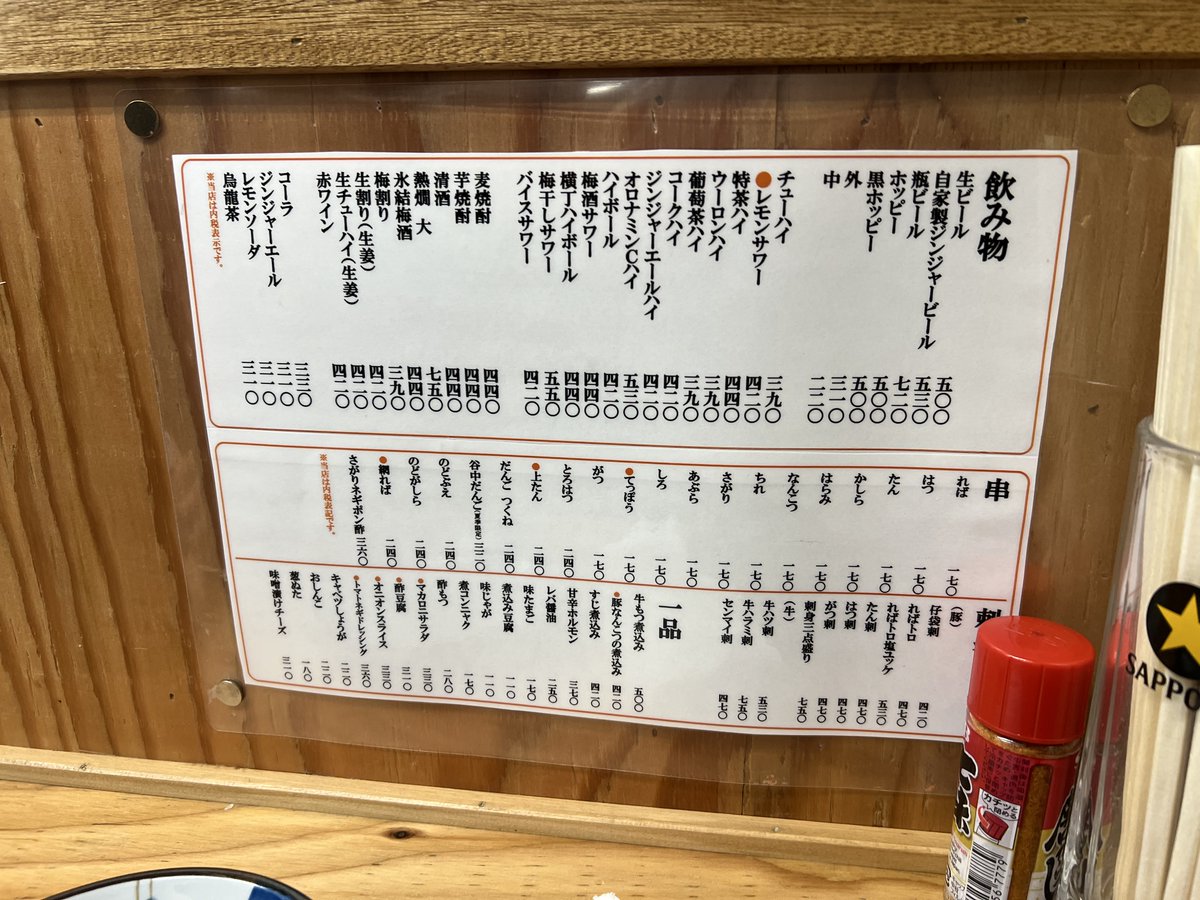 飲み物
生ビール 五〇〇
自家製ジンジャービール 五三〇
瓶ビール 七二〇
ホッピー 五〇〇
黒ホッピー 五〇〇
外 三一〇
中 二二〇
チューハイ 三九〇
●レモンサワー 四二〇
特茶ハイ 四四〇
ウーロンハイ 三九〇
葡萄茶ハイ 三九〇
コークハイ 四二〇
ジンジャーエールハイ 四二〇
オロナミンCハイ 五三〇
ハイボール 四二〇
梅酒サワー 四四〇
横丁ハイボール 四四〇
梅干しサワー 五五〇
バイスサワー 四二〇
麦焼酎 四四〇
芋焼酎 四四〇
清酒 四四〇
熱燗 大 七五〇
氷結梅酒 四四〇
梅割り 三九〇
生割り(生姜) 四二〇
生チューハイ(生姜) 四二〇
赤ワイン 四二〇
コーラ 三三〇
ジンジャーエール 三一〇
レモンソーダ 三一〇
烏龍茶 三一〇
※当店は内税表示です。
串
れば 一七〇
はつ 一七〇
たん 一七〇
かしら 一七〇
はらみ 一七〇
なんこつ 一七〇
ちれ 一七〇
さがり 一七〇
あぶら 一七〇
しろ 一七〇
●てっぽう 一七〇
がつ 一七〇
とろはつ 二四〇
●上たん 二四〇
だんご つくね 二四〇
谷中だんご(夏季限定) 三二〇
のどぶえ 二四〇
のどがしら 二四〇
●網れば 二四〇
さがりネギポン酢 三六〇
※当店は内税表記です。
刺
(豚)
仔袋刺 四二〇
ればトロ 四七〇
ればトロ塩ユッケ 五三〇
たん刺 四七〇
はつ刺 四七〇
がつ刺 四七〇
刺身三点盛り 七五〇
(牛)
牛ハツ刺 五三〇
牛ハラミ刺 七五〇
センマイ刺 四七〇
一品
牛もつ煮込み 五〇〇
●豚なんこつの煮込み 四二〇
すじ煮込み 四二〇
甘辛ホルモン 三七〇
レバ醤油 二五〇
味たまご 一七〇
煮込み豆腐 一一〇
味じゃが 一一〇
煮コンニャク 一七〇
酢もつ 二八〇
●マカロニサラダ 三三〇
●酢豆腐 三一〇
●オニオンスライス 三三〇
●トマトネギドレッシング 三六〇
キャベツしょうが 二二〇
おしんこ 二二〇
葱ぬた 一八〇
味噌漬けチーズ 三一〇
カチッと
閉める
SAPPO